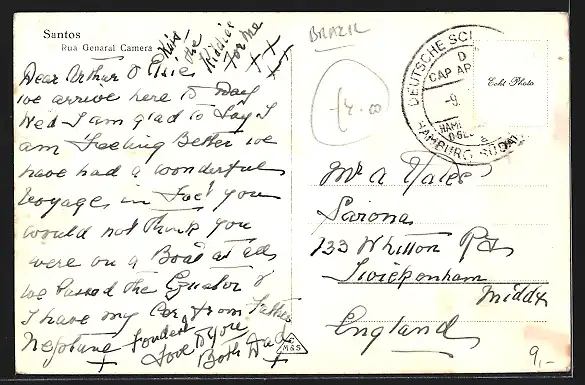 Santos
Rua Genaral Camera
Kiss
the
Kiddies
for me
Dear Arthur & Elsie
we arrive here to Day
Wed I am glad to Say I
am Feeling Better we
have had a wonderful
Voyage, in Fact you
would not think you
were on a Boat at all
we passed the Equator &
I have my Cer. from Father
Neptune Fondest
Love to you
Both Dad
M&S
BRAZIL
DEUTSCHE
CAP AR
HAMBURG-SÜDAM
Echt Photo
Mr A Yates
133 Whitton Rd
Twickenham
Middx
England
9,-